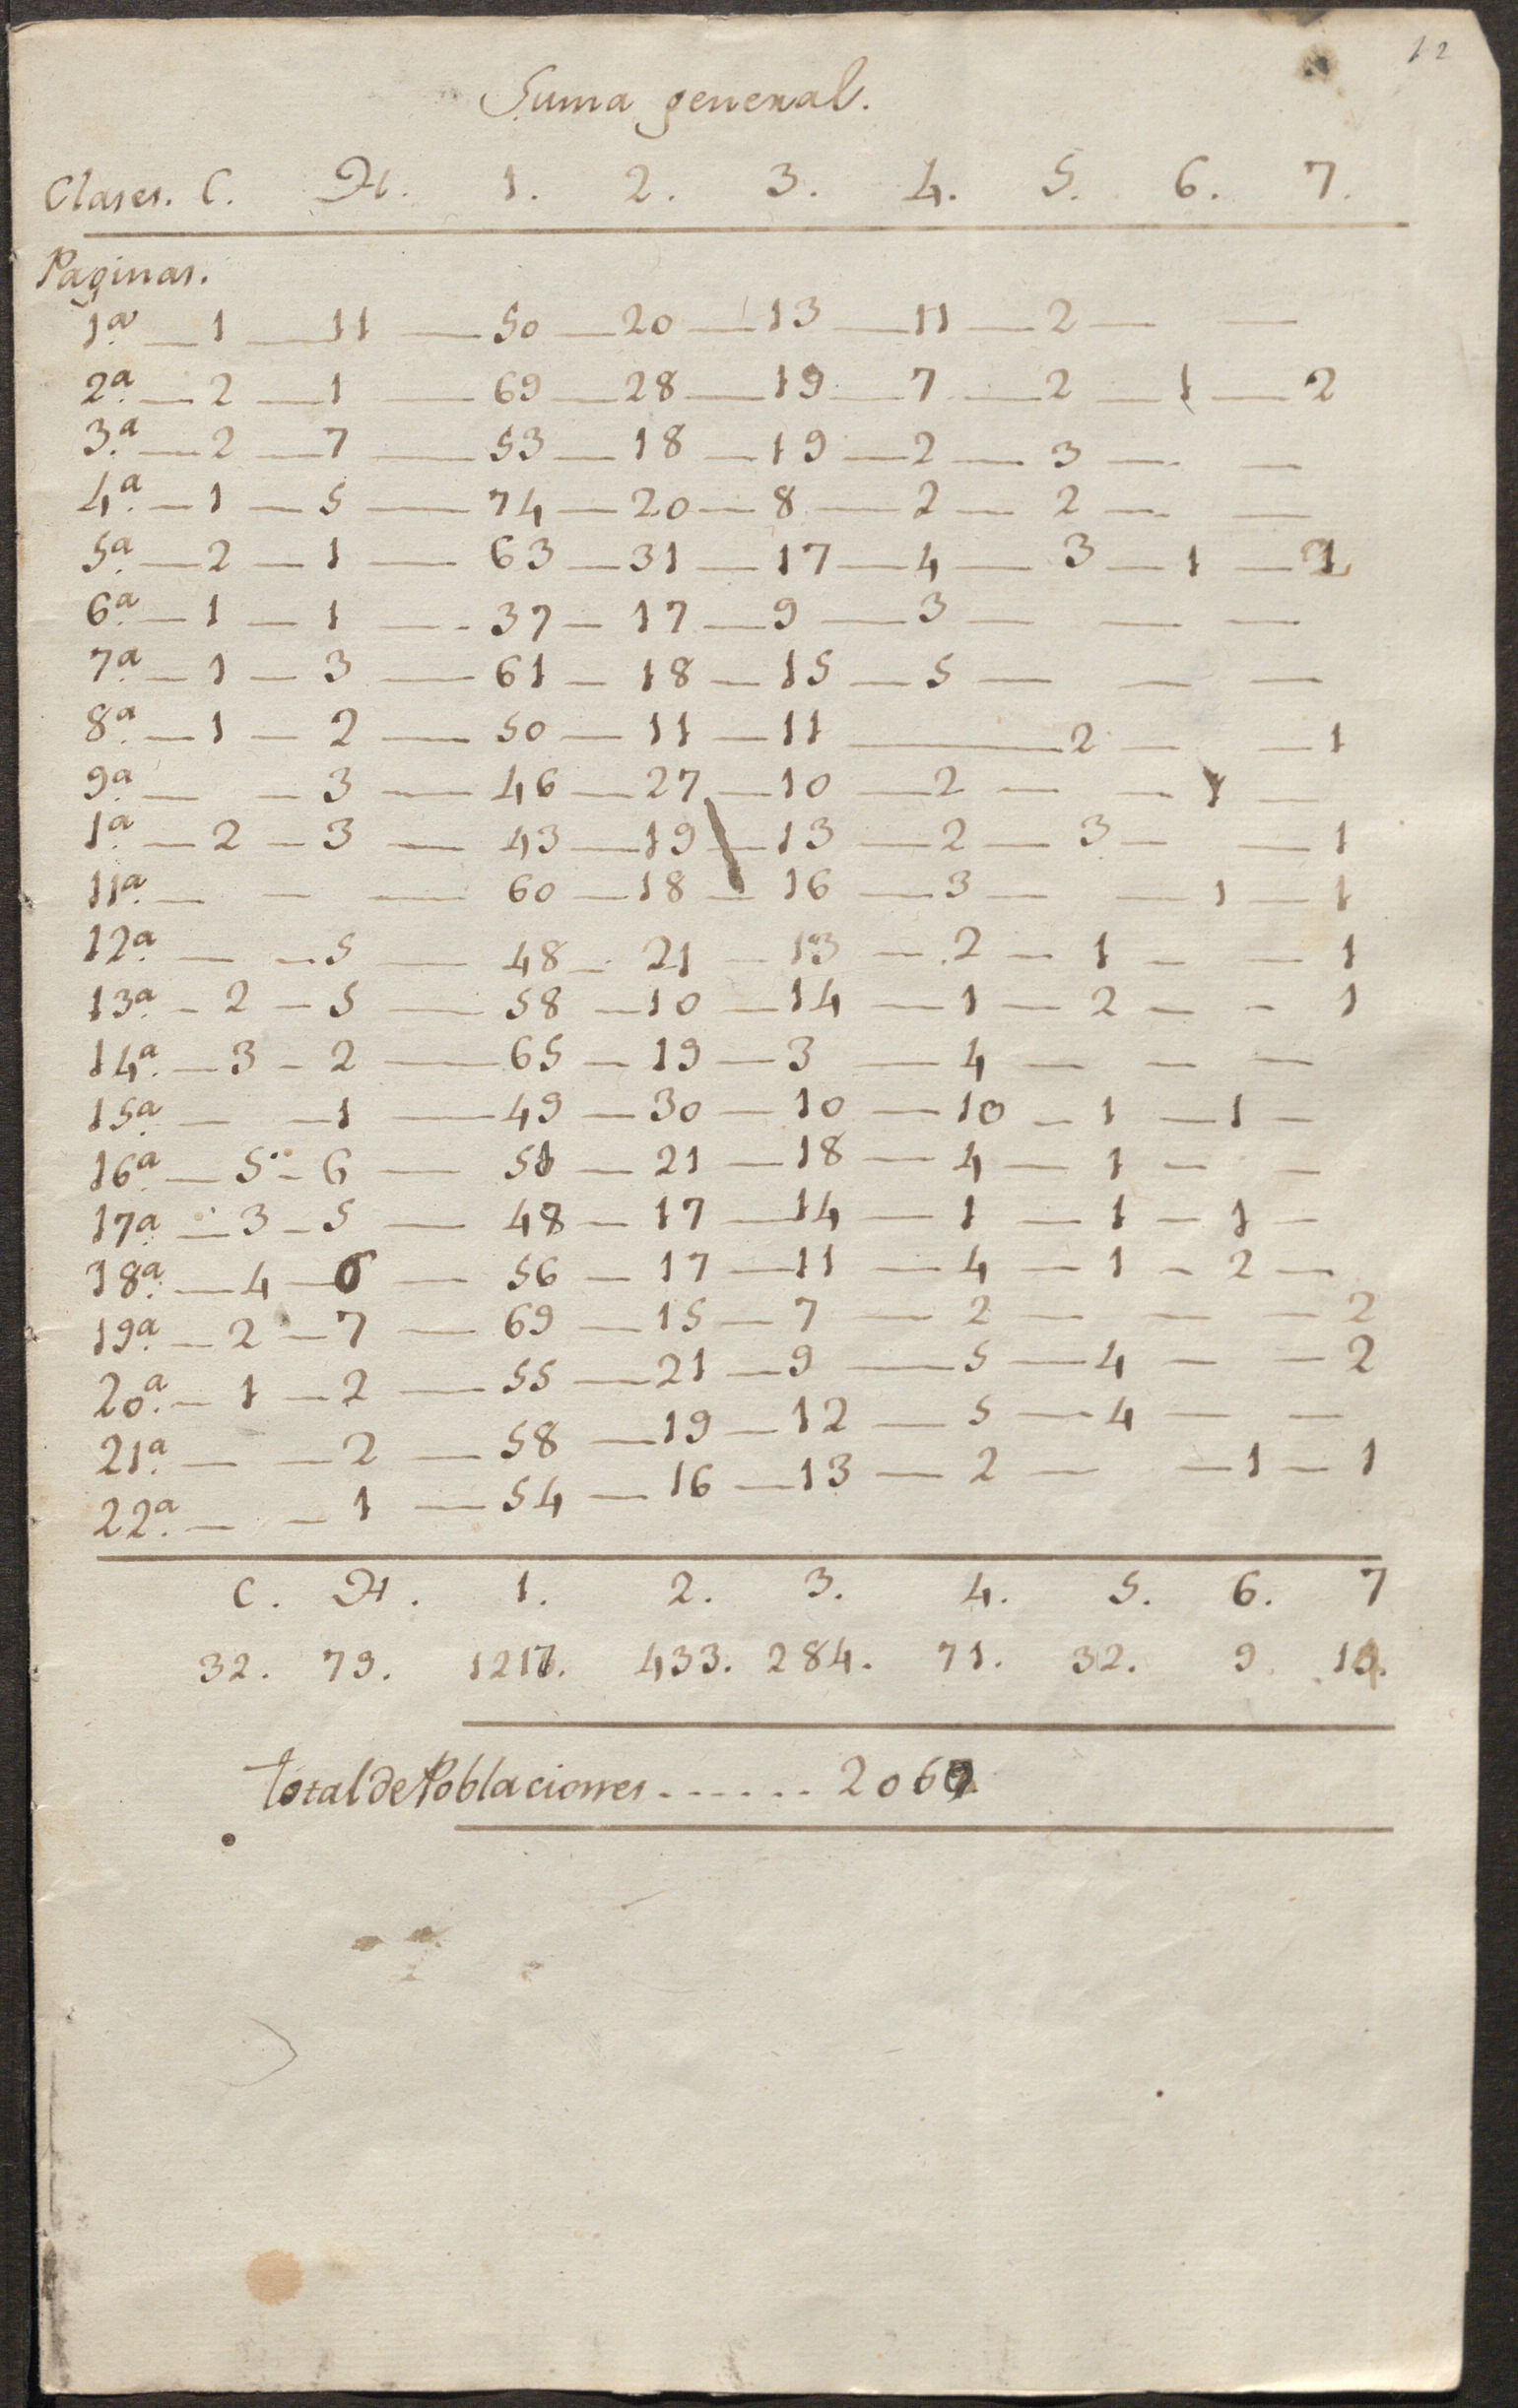 12
Suma general.
Clases. C. H. 1. 2. 3. 4. 5. 6. 7.
Paginas.
1.ª — 1 — 11 — 50 — 20 — 13 — 11 — 2 — —
2.ª — 2 — 1 — 69 — 28 — 19 — 7 — 2 — 1 — 2
3.ª — 2 — 7 — 53 — 18 — 19 — 2 — 3 — —
4.ª — 1 — 5 — 74 — 20 — 8 — 2 — 2 — —
5.ª — 2 — 1 — 63 — 31 — 17 — 4 — 3 — 1 —
6.ª — 1 — 1 — 37 — 17 — 9 — 3 — — —
7.ª — 1 — 3 — 61 — 18 — 15 — 5 — — —
8.ª — 1 — 2 — 50 — 11 — 11 — 2 — — 1
9.ª — — 3 — 46 — 27 — 10 — 2 — — 1 —
1.ª — 2 — 3 — 43 — 19 — 13 — 2 — 3 — — 1
11.ª — — — 60 — 18 — 16 — 3 — — 1 — 1
12.ª — — 5 — 48 — 21 — 13 — 2 — 1 — — 1
13.ª — 2 — 5 — 58 — 10 — 14 — 1 — 2 — — 1
14.ª — 3 — 2 — 65 — 19 — 3 — 4 — — —
15.ª — — 1 — 49 — 30 — 10 — 10 — 1 — 1 —
16.ª — 5 — 6 — 51 — 21 — 18 — 4 — 1 — —
17.ª — 3 — 5 — 48 — 17 — 14 — 1 — 1 — 1 —
18.ª — 4 — 6 — 56 — 17 — 11 — 4 — 1 — 2 —
19.ª — 2 — 7 — 69 — 15 — 7 — 2 — — — 2
20.ª — 1 — 2 — 55 — 21 — 9 — 5 — 4 — — 2
21.ª — — 2 — 58 — 19 — 12 — 5 — 4 — —
22.ª — — 1 — 54 — 16 — 13 — 2 — — 1 — 1
C. H. 1. 2. 3. 4. 5. 6. 7
32. 79. 1217. 433. 284. 71. 32. 9
Total de Poblaciones . . . . . . 2067.